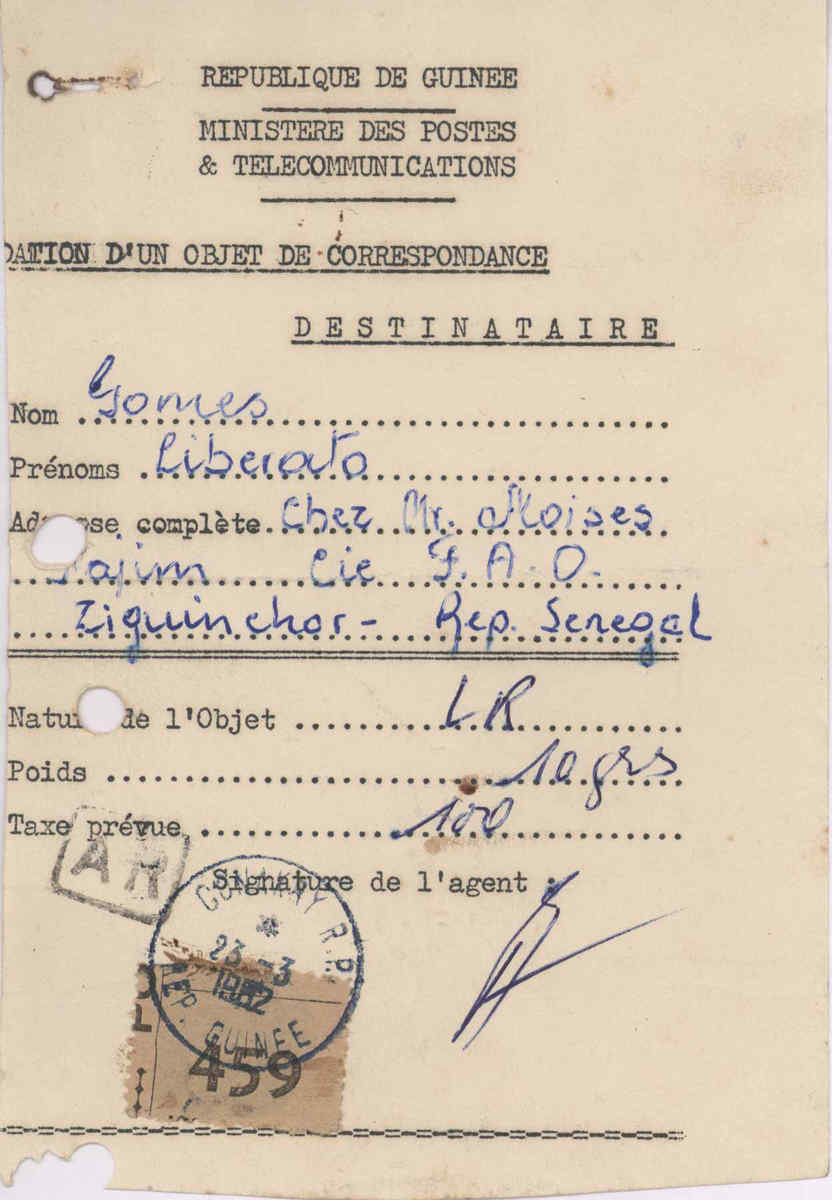 REPUBLIQUE DE GUINEE
MINISTERE DES POSTES
& TELECOMMUNICATIONS
DATION D'UN OBJET DE CORRESPONDANCE
DESTINATAIRE
Nom Gomes
Prénoms Liberato
complète Chez Mr. Moises
Cie F.A.O.
Ziguinchor - Rep. Senegal
de l'Objet LR
Poids 10 grs
Taxe prévue 100
AR
Signature de l'agent :
CONAKRY R.P.
23 -3
REP. GUINEE
459